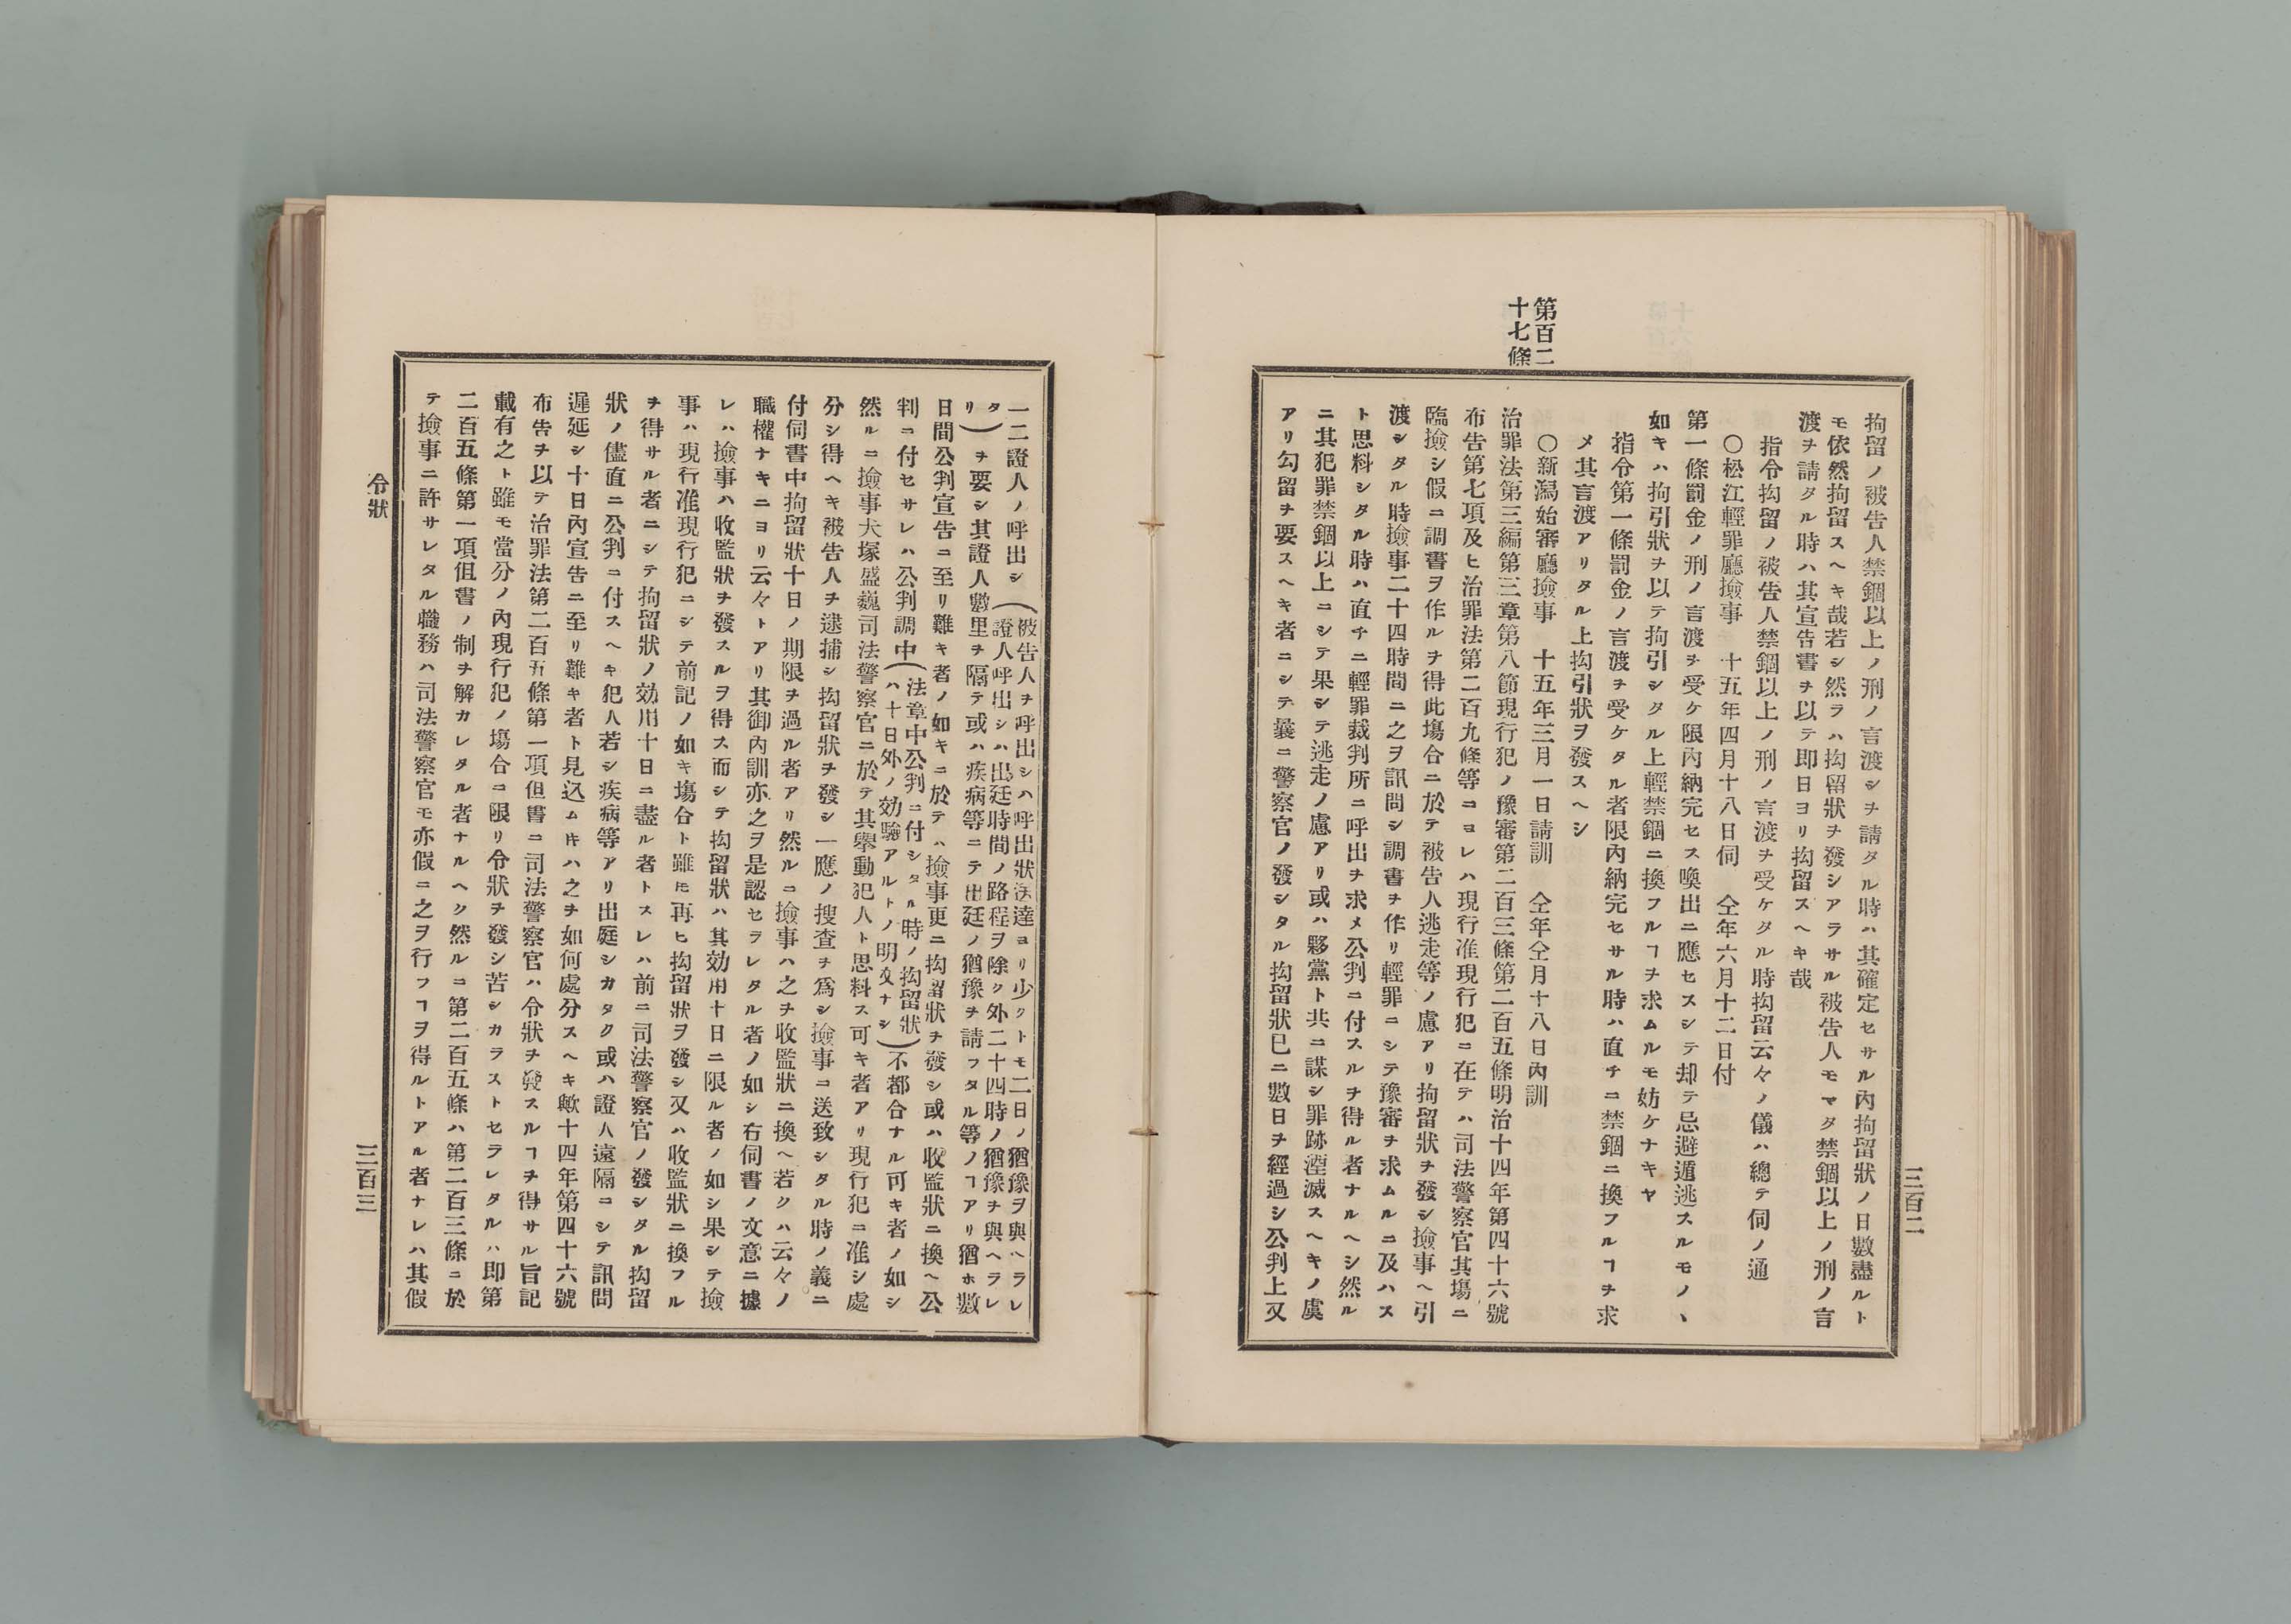 三百二
拘留ノ被告人禁錮以上ノ刑ノ言渡シヲ請タル時ハ其確定セサル內拘留狀ノ日數盡ルト
モ依然拘留スヘキ哉若シ然ラハ拘留狀ヲ發シアラサル被告人モマタ禁錮以上ノ刑ノ言
渡ヲ請タル時ハ其宣告書ヲ以テ即日ヨリ拘留スヘキ哉
指令拘留ノ被告人禁錮以上ノ刑ノ言渡ヲ受ケタル時拘留云々ノ儀ハ總テ伺ノ通
〇松江輕罪廳撿事　十五年四月十八日伺　仝年六月十二日付
第一條罰金ノ刑ノ言渡ヲ受ケ限內納完セス喚出ニ應セスシテ却テ忌避遁逃スルモノヽ
如キハ拘引狀ヲ以テ拘引シタル上輕禁錮ニ換フルヿヲ求ムルモ妨ケナキヤ
指令第一條罰金ノ言渡ヲ受ケタル者限內納完セサル時ハ直チニ禁錮ニ換フルヿヲ求
メ其言渡アリタル上拘引狀ヲ發スヘシ
第百二
十七條
〇新潟始審廳撿事　十五年三月一日請訓　仝年仝月十八日內訓
治罪法第三編第三章第八節現行犯ノ豫審第二百三條第二百五條明治十四年第四十六號
布告第七項及ヒ治罪法第二百九條等ニヨレハ現行准現行犯ニ在テハ司法警察官其塲ニ
臨撿シ假ニ調書ヲ作ルヲ得此塲合ニ於テ被告人逃走等ノ慮アリ拘留狀ヲ發シ撿事ヘ引
渡シタル時撿事二十四時間ニ之ヲ訊問シ調書ヲ作リ輕罪ニシテ豫審ヲ求ムルニ及ハス
ト思料シタル時ハ直チニ輕罪裁判所ニ呼出ヲ求メ公判ニ付スルヲ得ル者ナルヘシ然ル
ニ其犯罪禁錮以上ニシテ果シテ逃走ノ慮アリ或ハ夥黨ト共ニ謀シ罪跡湮滅スヘキノ虞
アリ勾留ヲ要スヘキ者ニシテ曩ニ警察官ノ發シタル拘留狀已ニ數日ヲ經過シ公判上又
一二證人ノ呼出シ（被告人ヲ呼出シハ呼出狀送達ヨリ少クトモ二日ノ猶豫ヲ與ヘラレ
タリ）證人呼出シハ出廷時間ノ路程ヲ除ク外二十四時ノ猶豫ヲ與ヘラレ
ヲ要シ其證人數里ヲ隔テ或ハ疾病等ニテ出廷ノ猶豫ヲ請フタル等ノヿアリ猶ホ數
日間公判宣告ニ至リ難キ者ノ如キニ於テハ撿事更ニ拘留狀ヲ發シ或ハ收監狀ニ換ヘ公
判ニ付セサレハ公判調中（法章中公判ニ付シタル時ノ拘留狀
ハ十日外ノ効驗アルトノ明文ナシ）不都合ナル可キ者ノ如シ
然ルニ撿事犬塚盛巍司法警察官ニ於テ其擧動犯人ト思料ス可キ者アリ現行犯ニ准シ處
分シ得ヘキ被告人ヲ逮捕シ拘留狀ヲ發シ一應ノ搜査ヲ爲シ撿事ニ送致シタル時ノ義ニ
付伺書中拘留狀十日ノ期限ヲ過ル者アリ然ルニ撿事ハ之ヲ收監狀ニ換ヘ若クハ云々ノ
職權ナキニヨリ云々トアリ其御內訓亦之ヲ是認セラレタル者ノ如シ右伺書ノ文意ニ據
レハ撿事ハ收監狀ヲ發スルヲ得ス而シテ拘留狀ハ其効用十日ニ限ル者ノ如シ果シテ撿
事ハ現行准現行犯ニシテ前記ノ如キ塲合ト雖モ再ヒ拘留狀ヲ發シ又ハ收監狀ニ換フル
ヲ得サル者ニシテ拘留狀ノ効用十日ニ盡ル者トスレハ前ニ司法警察官ノ發シタル拘留
狀ノ儘直ニ公判ニ付スヘキ犯人若シ疾病等アリ出庭シカタク或ハ證人遠隔ニシテ訊問
遲延シ十日內宣告ニ至リ難キ者ト見込ム片ハ之ヲ如何處分スヘキ歟十四年第四十六號
布告ヲ以テ治罪法第二百五條第一項但書ニ司法警察官ハ令狀ヲ發スルヿヲ得サル旨記
載有之ト雖モ當分ノ內現行犯ノ塲合ニ限リ令狀ヲ發シ苦シカラストセラレタルハ即第
二百五條第一項但書ノ制ヲ解カレタル者ナルヘク然ルニ第二百五條ハ第二百三條ニ於
テ撿事ニ許サレタル職務ハ司法警察官モ亦假ニ之ヲ行フヿヲ得ルトアル者ナレハ其假
令狀
三百三